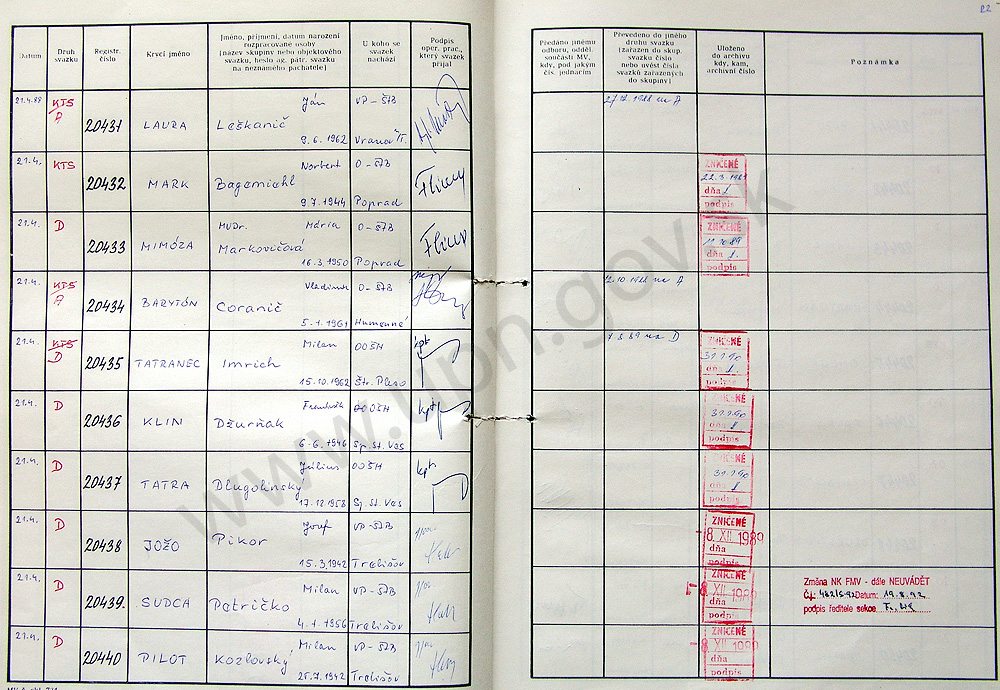 22
Datum
Druh svazku
Registr. číslo
Krycí jméno
Jméno, příjmení, datum narození
rozpracované osoby
(název skupiny nebo objektového
svazku, heslo ag. pátr. svazku
na neznámého pachatele)
U koho se
svazek
nachází
Podpis
oper. prac.,
který svazek
přijal
Předáno jinému
odboru, odděl.
součásti MV,
kdy, pod jakým
čís. jednacím
Převedeno do jiného
druhu svazku
(zařazen do skup.
svazku číslo
nebo uvést čísla
svazků zařazených
do skupiny)
Uloženo
do archivu
kdy, kam,
archivní číslo
Poznámka
21.4.88 KTS Ján VP-ŠTB
A 20431 LAURA Leškanič
9.6.1962 Vranov
27.12.1988 na A
21.4. KTS Norbert O-ŠTB
20432 MARK Bagemichl
9.7.1944 Poprad
ZNIČENÉ
dňa
podpis
21.4. D MUDr. Mária O-ŠTB
20433 MIMÓZA Markovičová
16.3.1950 Poprad
ZNIČENÉ
dňa
podpis
21.4. KTS Vladimír O-ŠTB
A 20434 BARYTÓN Coranič
5.1.1961 Humenné
10.1988 na A
21.4. KTS Milan OOŠH kpt
D 20435 TATRANEC Imrich
15.10.1962 Št. Pleso
89 na D
ZNIČENÉ
31.1.90
dňa
podpis
21.4. D OOŠH kpt
20436 KLIN Džurňak
6.6.1946 Sp. St. Ves
ZNIČENÉ
31.1.90
dňa
podpis
21.4. D Július OOŠH kpt
20437 TATRA Dlugolinský
17.12.1958 Sp. St. Ves
ZNIČENÉ
31.1.90
dňa
podpis
21.4. D Jozef VP-ŠTB
20438 JOŽO Pikor
15.3.1942 Trebišov
ZNIČENÉ
-8. XII 1989
dňa
podpis
21.4. D Milan VP-ŠTB
20439 SUDCA Petričko
4.1.1956 Trebišov
ZNIČENÉ
-8 XII 1989
dňa
podpis
Změna NK FMV - dále NEUVÁDĚT
Č.j.: Datum: 19.8.92
podpis ředitele sekce
21.4. D Milan VP-ŠTB
20440 PILOT Kozlovský
25.7.1942 Trebišov
ZNIČENÉ
-8 XII 1989
dňa
podpis
www.upn.gov.sk